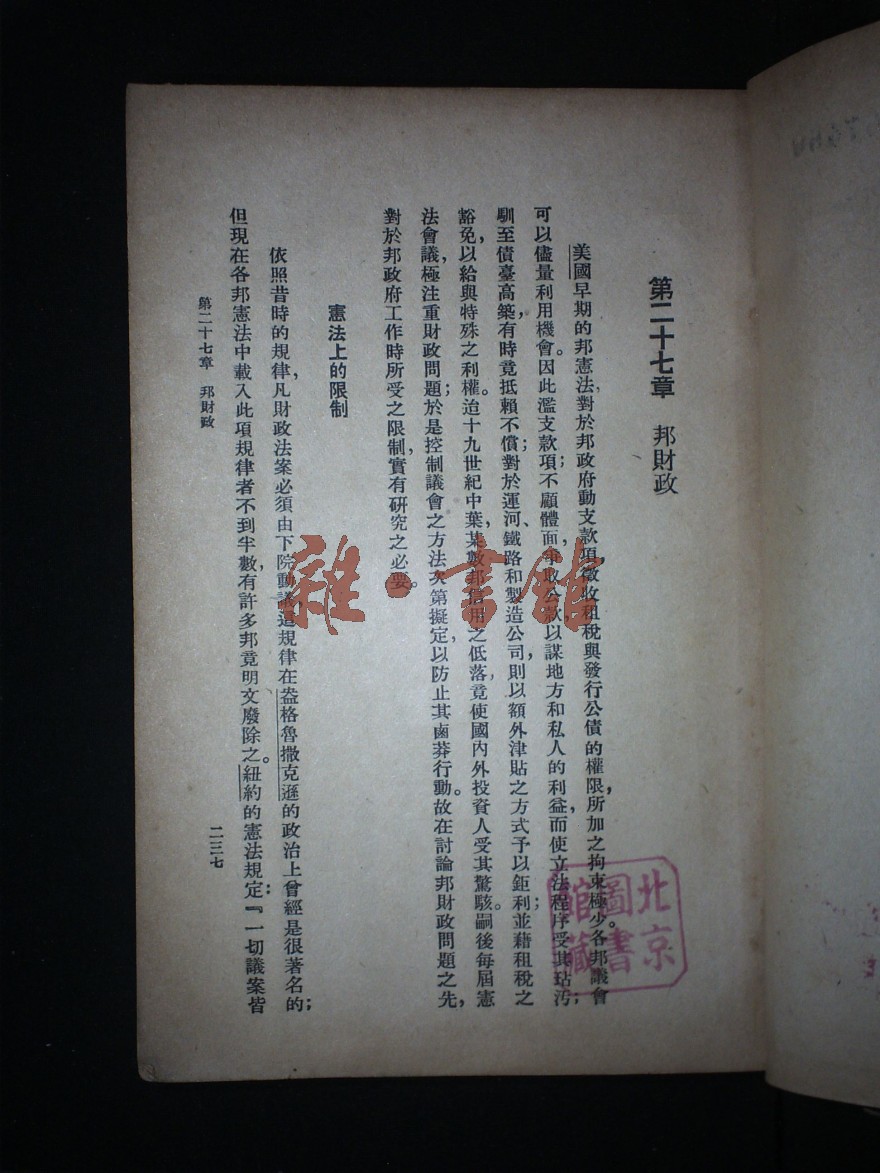 第二十七章　邦財政
美國早期的邦憲法，對於邦政府動支款項，徵收租稅與發行公債的權限，所加之拘束極少。各邦議會
可以儘量利用機會。因此濫支款項；不顧體面，爭取公款以謀地方和私人的利益，而使立法程序受其玷汚；
馴至債臺高築，有時竟抵賴不償；對於運河、鐵路和製造公司，則以額外津貼之方式予以鉅利；並藉租稅之
豁免，以給與特殊之利權。迨十九世紀中葉，某數邦信用之低落，竟使國內外投資人受其驚駭。嗣後每屆憲
法會議，極注重財政問題；於是控制議會之方法次第擬定，以防止其鹵莽行動。故在討論邦財政問題之先，
對於邦政府工作時所受之限制，實有研究之必要。
憲法上的限制
依照昔時的規律，凡財政法案必須由下院動議，這規律在盎格魯撒克遜的政治上曾經是很著名的；
但現在各邦憲法中載入此項規律者不到半數，有許多邦竟明文廢除之。紐約的憲法規定：『一切議案皆
第二十七章　邦財政
二三七
北京
圖書
館藏
雜·書館